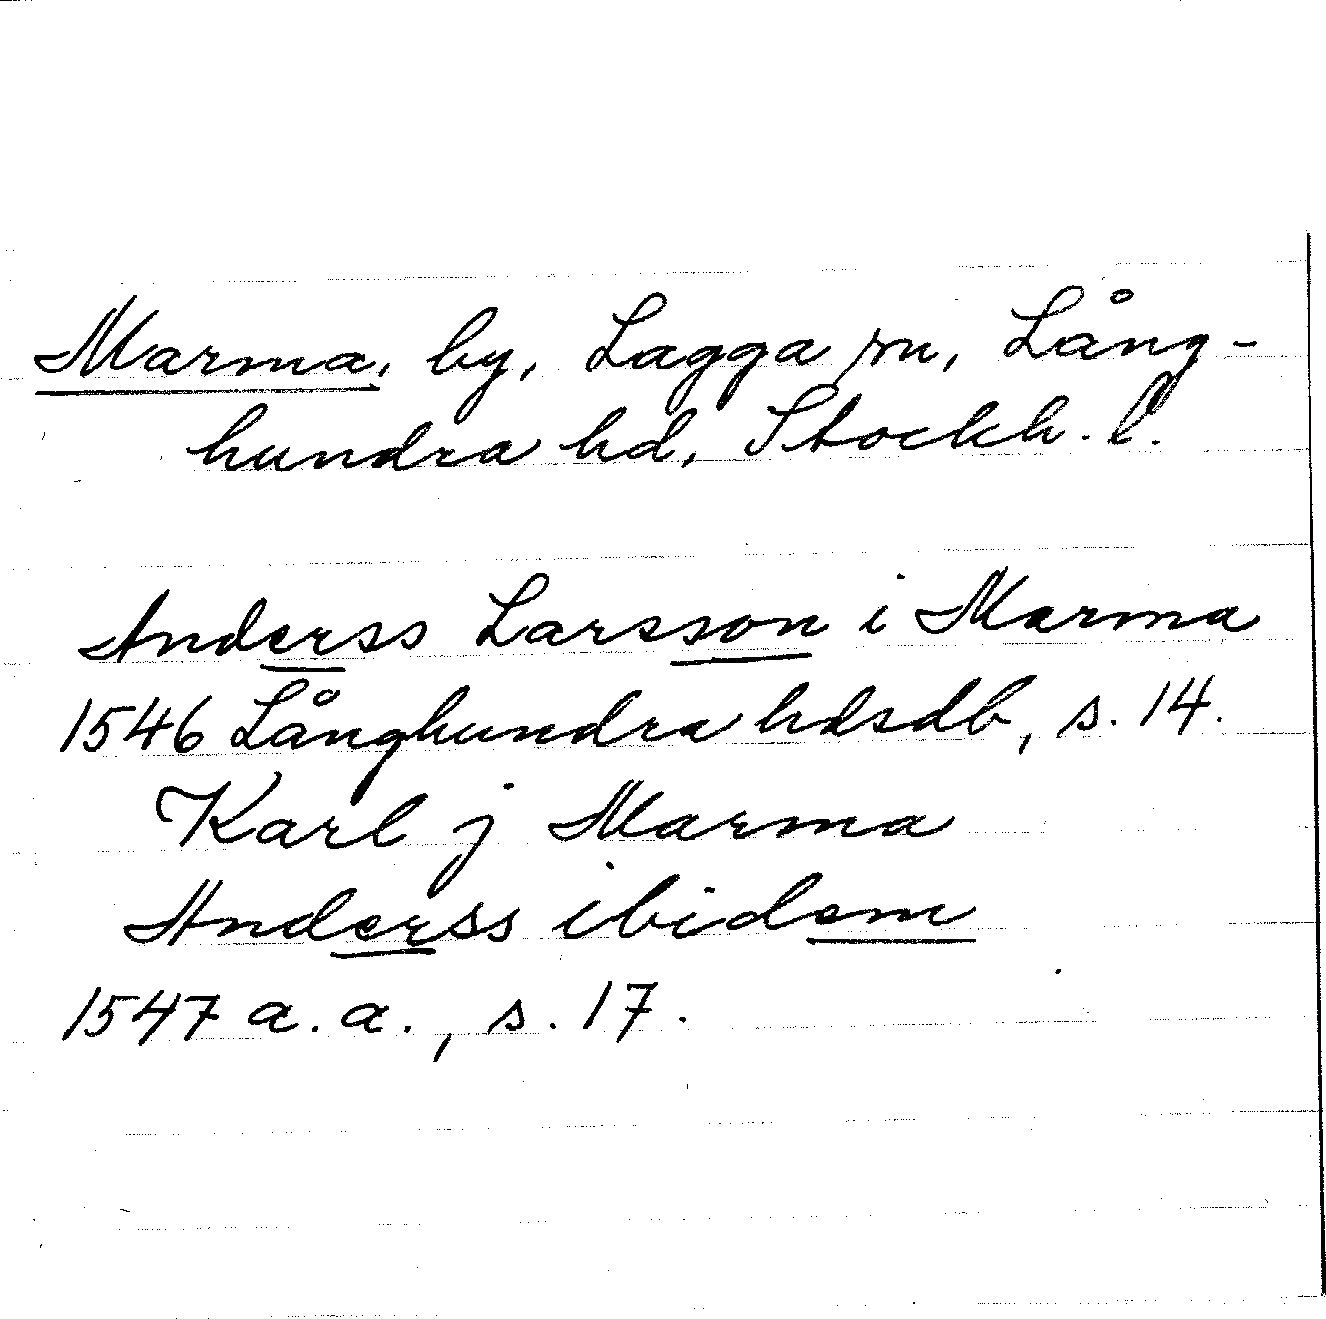 Marma, by, Lagga sn, Lång-
hundra hd, Stockh. l.
Anderss Larsson i Marma
1546 Långhundra hdsdb, s. 14.
Karl j Marma
Anderss ibidem
1547 a. a., s. 17.